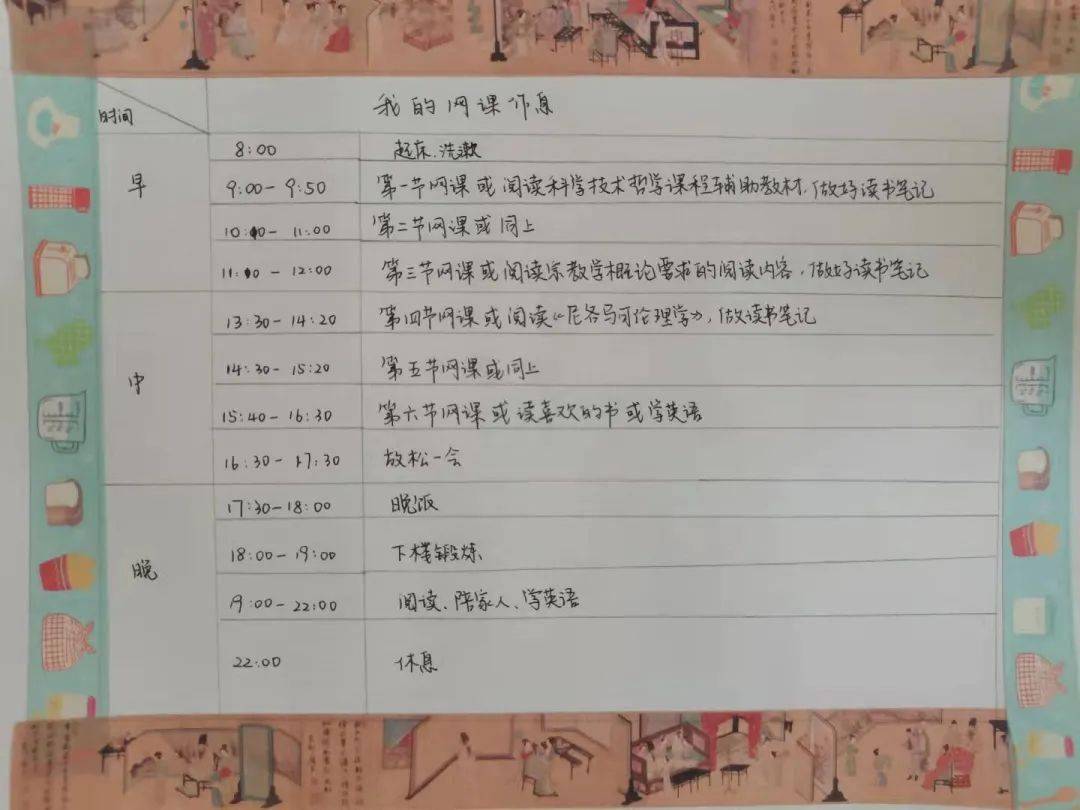 时间 我的网课作息
早
8:00 起床、洗漱
9:00-9:50 第一节网课或阅读科学技术哲学课程辅助教材,做好读书笔记
10:10-11:00 第二节网课或同上
11:10-12:00 第三节网课或阅读宗教学概论要求的阅读内容,做好读书笔记
中
13:30-14:20 第四节网课或阅读《尼各马可伦理学》,做读书笔记
14:30-15:20 第五节网课或同上
15:40-16:30 第六节网课或读喜欢的书或学英语
16:30-17:30 放松一会
晚
17:30-18:00 晚饭
18:00-19:00 下楼锻炼
19:00-22:00 阅读、陪家人、学英语
22:00 休息